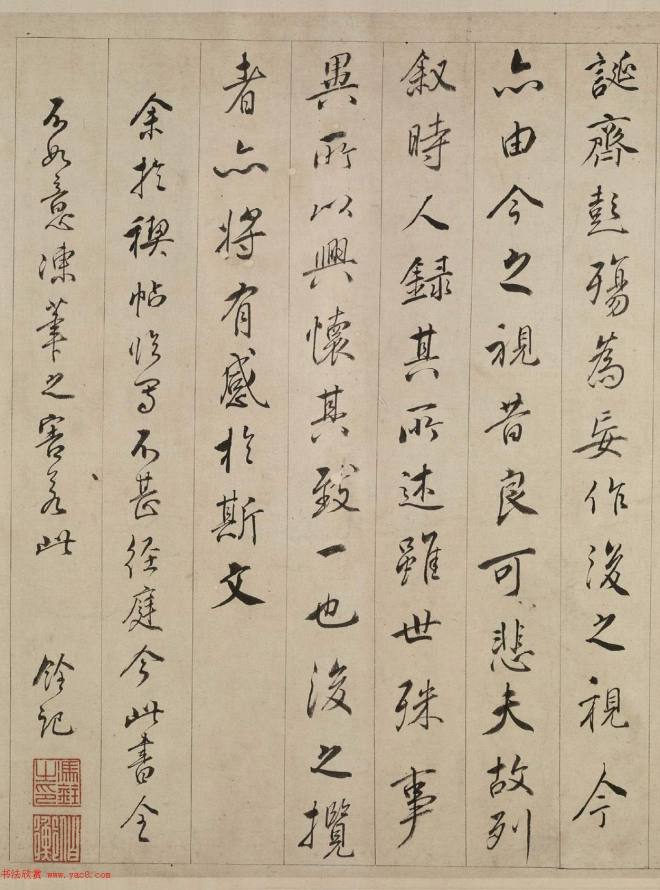 誕齊彭殤為妄作後之視今
亦由今之視昔良可悲夫故列
叙時人録其所述雖世殊事
異所以興懷其致一也後之攬
者亦將有感於斯文
余於禊帖臨写不甚徑庭今此書全
不如意凍筆之害若此
銓記
馮銓之印
书法欣赏 www.yac8.com